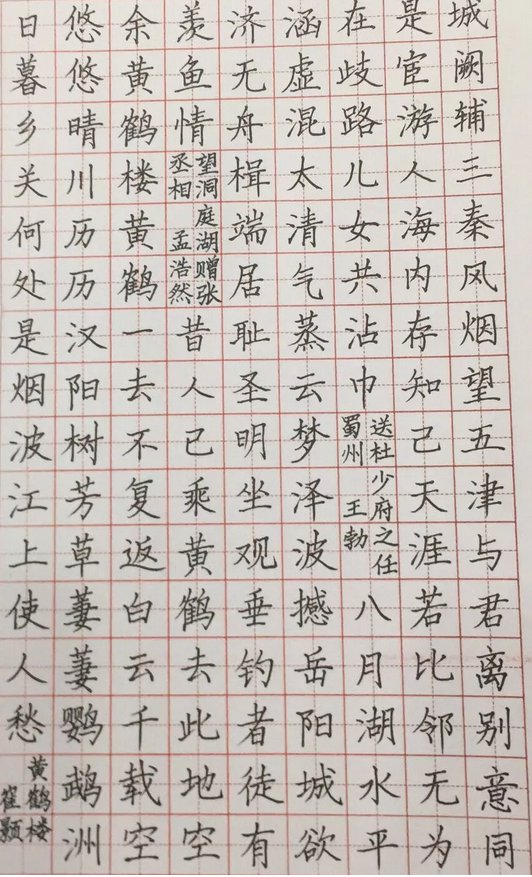 城阙辅三秦风烟望五津与君离别意同
是宦游人海内存知己天涯若比邻无为
在歧路儿女共沾巾
送杜少府之任
蜀州 王勃
八月湖水平
涵虚混太清气蒸云梦泽波撼岳阳城欲
济无舟楫端居耻圣明坐观垂钓者徒有
羡鱼情
望洞庭湖赠张
丞相 孟浩然
昔人已乘黄鹤去此地空
余黄鹤楼黄鹤一去不复返白云千载空
悠悠晴川历历汉阳树芳草萋萋鹦鹉洲
日暮乡关何处是烟波江上使人愁
黄鹤楼
崔颢